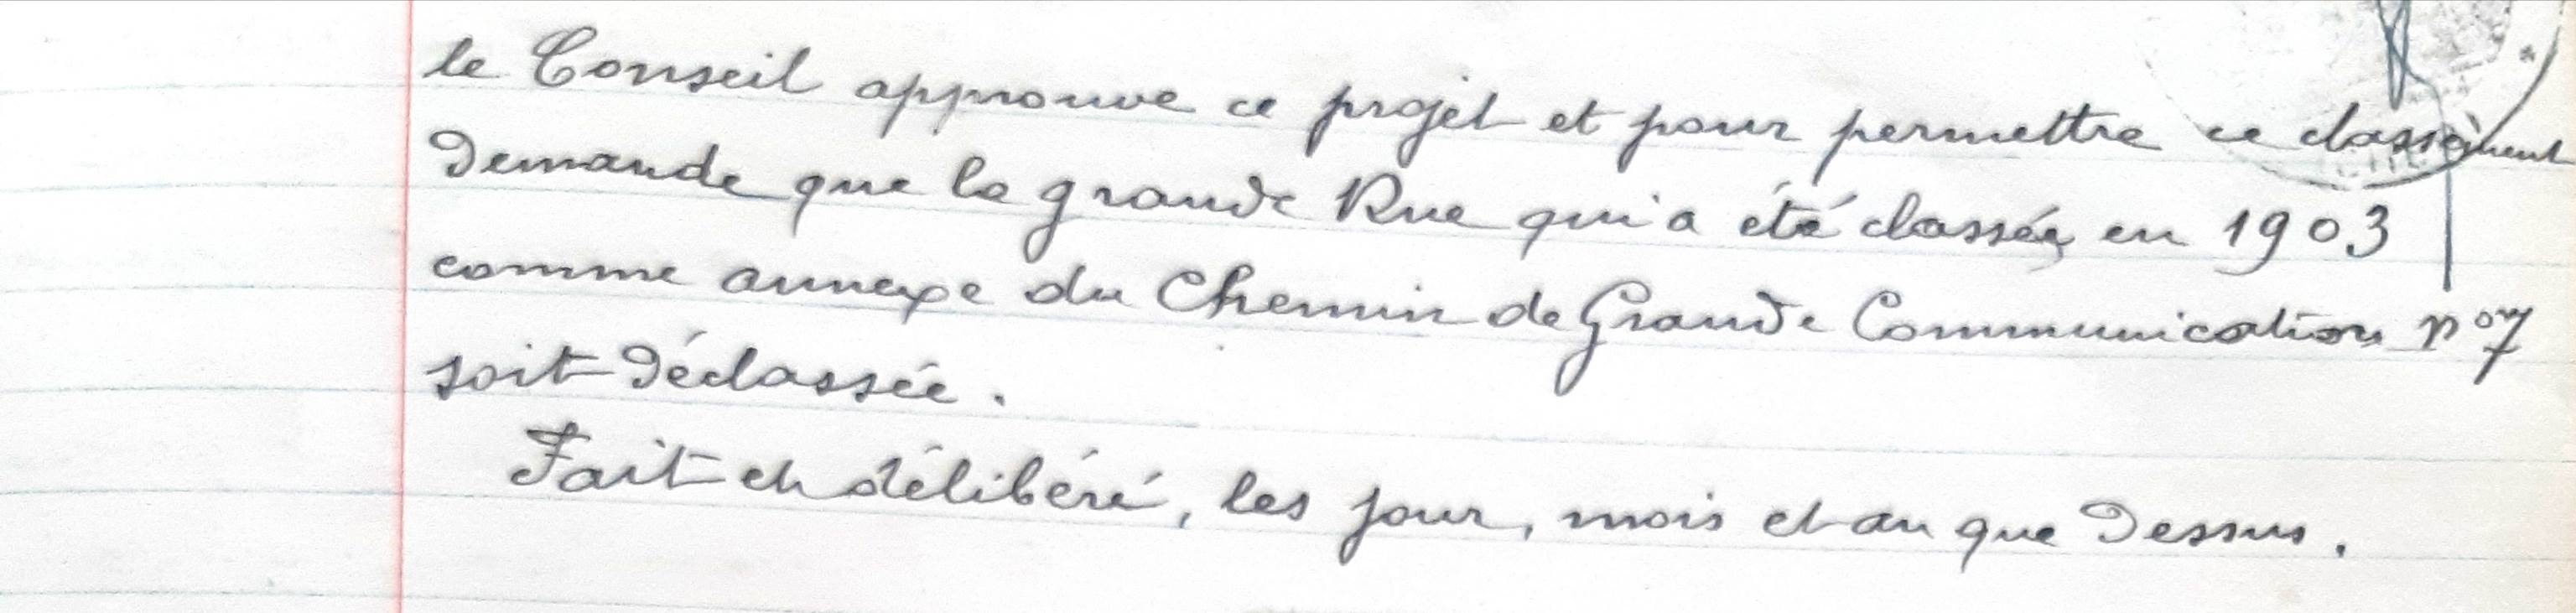 le Conseil approuve ce projet et pour permettre ce classement
demande que la grande Rue qui a été classée en 1903
comme annexe du Chemin de Grande Communication n° 7
soit déclassée.
Fait et délibéré, les jour, mois et an que dessus.